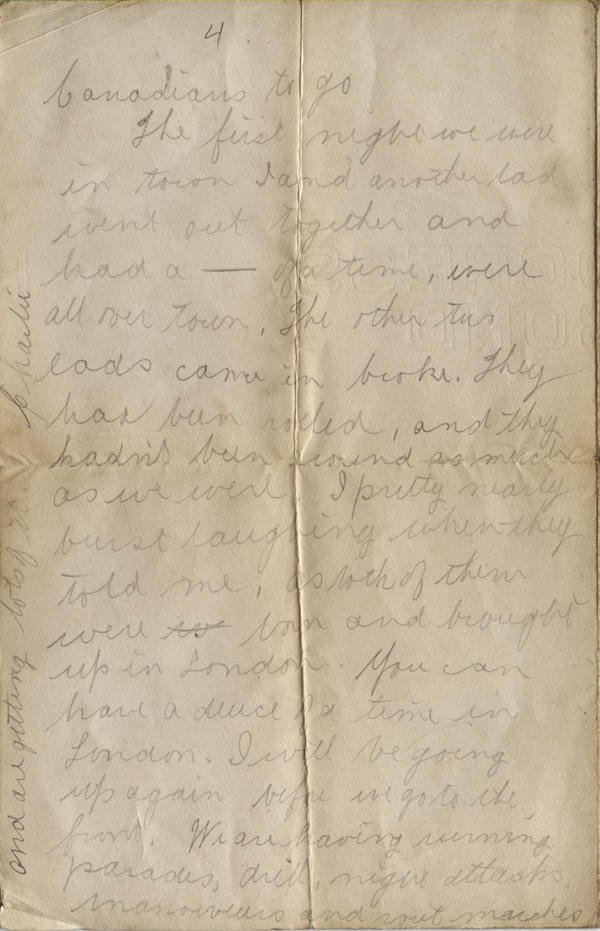 4.
Canadians to go
The first night we were
in town I and another lad
went out together and
had a — of a time, were
all over town. The other two
lads came in broke. They
had been rolled, and they
hadn't been around as much
as we were. I pretty nearly
burst laughing when they
told me, as both of them
were born and brought
up in London. You can
have a deuce of a time in
London. I will be going
up again before we go to the
front. We are having running
parades, drill, night attacks,
manouveurs and rout marches
and are getting lots of it. Charlie